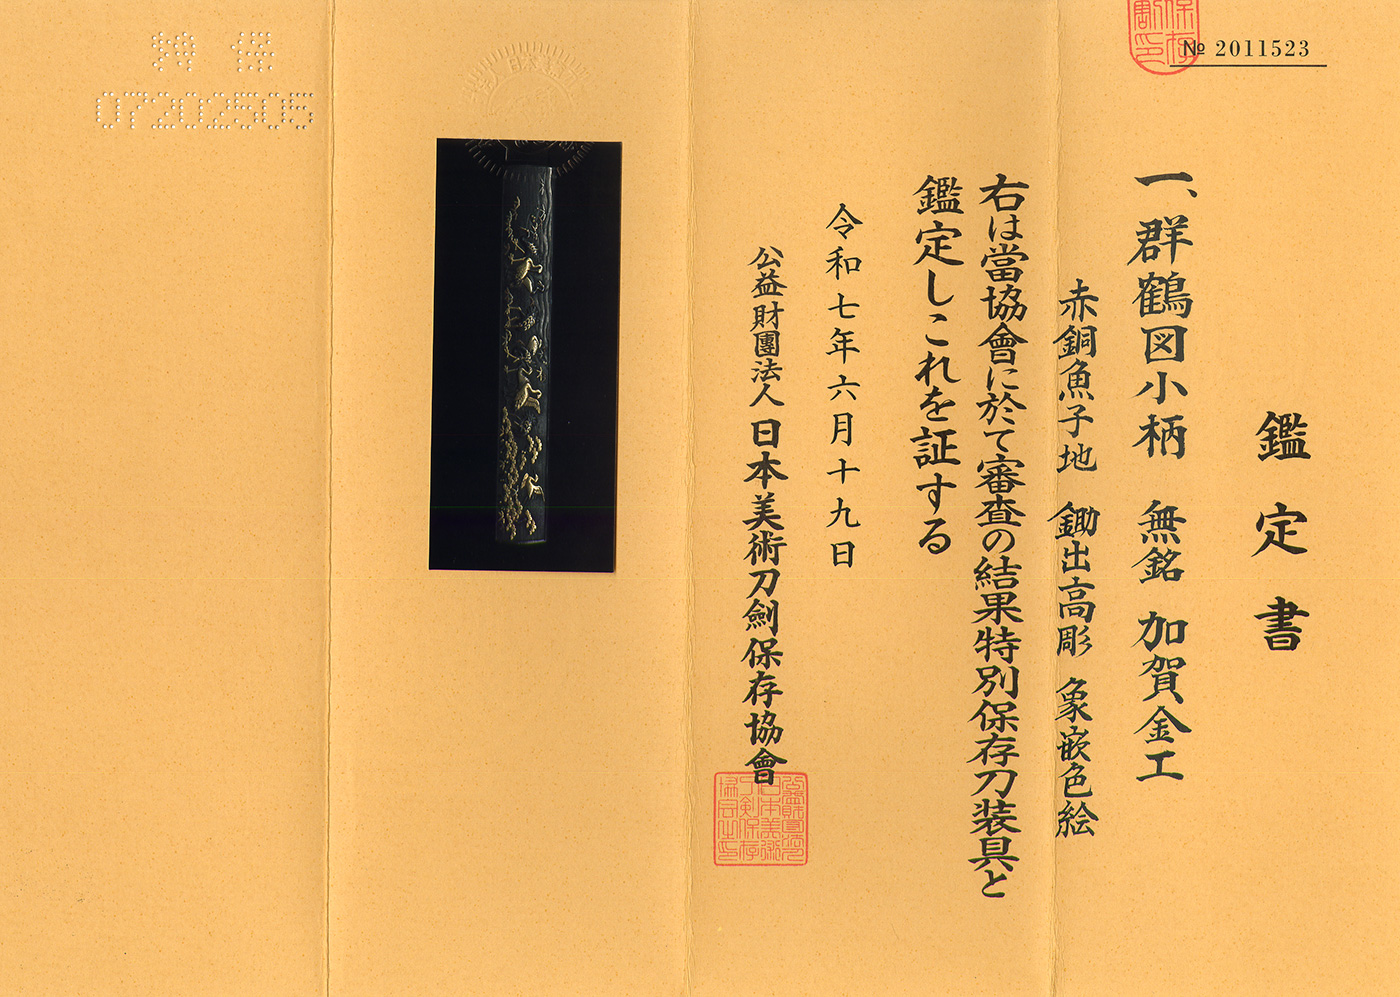 № 2011523
鑑定書
一、群鶴図小柄 無銘 加賀金工
赤銅魚子地 鋤出高彫 象嵌色絵
右は當協會に於て審査の結果特別保存刀装具と
鑑定しこれを証する
令和七年六月十九日
公益財團法人 日本美術刀劍保存協會
07202505